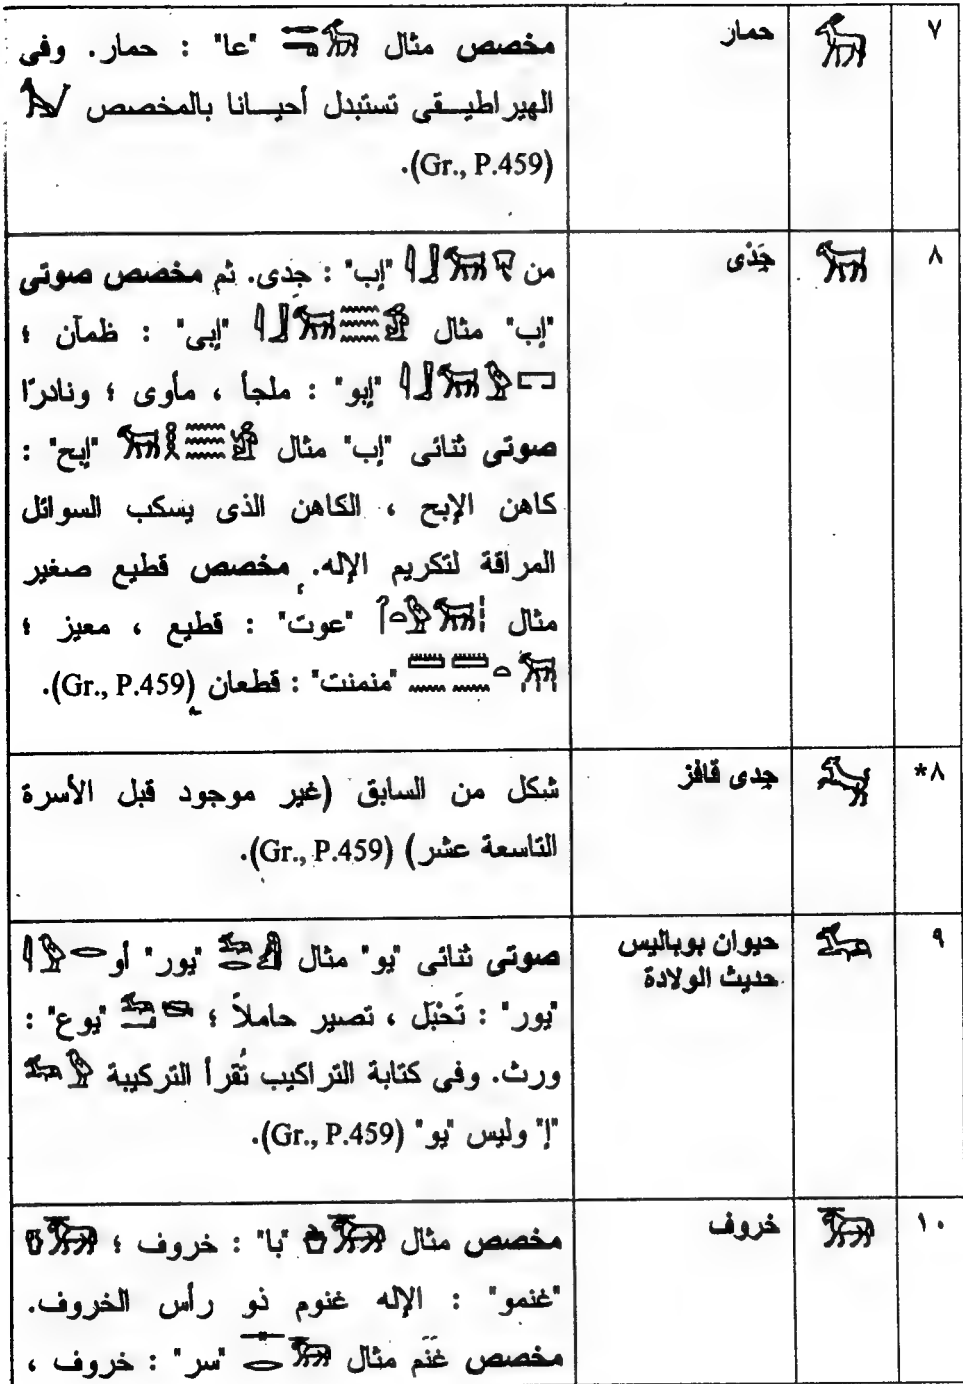 ٧ حمار مخصص مثال "عا" : حمار. وفى
الهيراطيـقى تستبدل أحيـانا بالمخصص
(Gr., P.459).
٨ جَدْى من "إب" : جدى. ثم مخصص صوتى
"إب" مثال "إبى" : ظمآن ؛
"إبو" : ملجأ ، مأوى ؛ ونادرًا
صوتى ثنائى "إب" مثال "إبح" :
كاهن الإبح ، الكاهن الذى يسكب السوائل
المراقة لتكريم الإله. مخصص قطيع صغير
مثال "عوت" : قطيع ، معيز ؛
"منمنت" : قطعان (Gr., P.459).
٨* جدى قافز شكل من السابق (غير موجود قبل الأسرة
التاسعة عشر) (Gr., P.459).
٩ حيوان بوباليس صوتى ثنائى "يو" مثال "يور" أو
حديث الولادة "يور" : تَحْبَل ، تصير حاملاً ؛ "يوع" :
ورث. وفى كتابة التراكيب تُقرأ التركيبة
"إ" وليس "يو" (Gr., P.459).
١٠ خروف مخصص مثال "با" : خروف ؛
"غنمو" : الإله غنوم ذو رأس الخروف.
مخصص غَنَم مثال "سر" : خروف ،